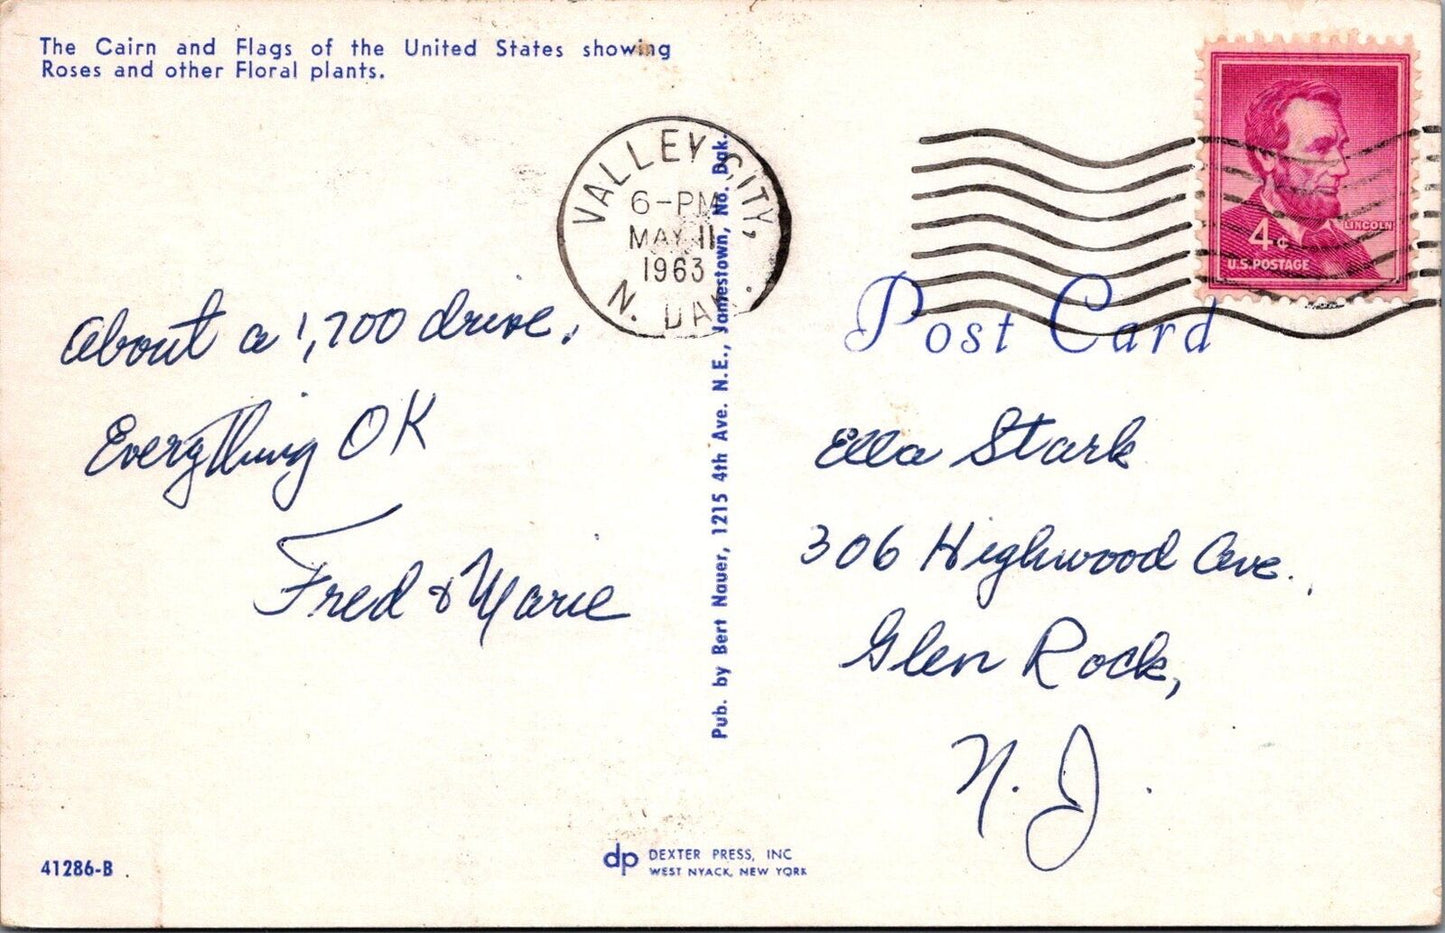 The Cairn and Flags of the United States showing
Roses and other Floral plants.
VALLEY CITY,
6-PM
MAY 11
1963
N. DAK.
LINCOLN
4¢
U.S. POSTAGE
Post Card
About a 1,700 drive.
Everything OK
Fred & Marie
Pub. by Bert Nauer, 1215 4th Ave. N.E., Jamestown, No. Dak.
Ella Stark
306 Highwood Ave.
Glen Rock,
N. J.
41286-B
dp DEXTER PRESS, INC
WEST NYACK, NEW YORK